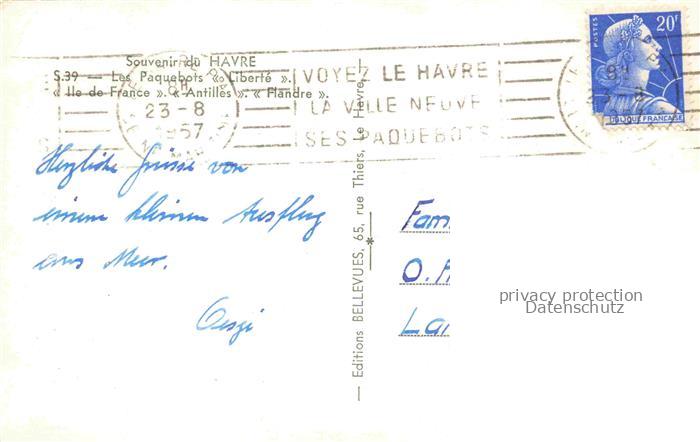 Souvenir du HAVRE
S.39 — Les Paquebots « Liberté ».
« Ile de France ». « Antilles ». « Flandre ».
23-8
1957
VOYEZ LE HAVRE
LA VILLE NEUVE
SES PAQUEBOTS
POSTES
20F
REPUBLIQUE FRANCAISE
Herzliche Grüsse von
einem kleinen Ausflug
ans Meer.
Editions BELLEVUES, 65, rue Thiers, Le Havre
Fam
O.
La
privacy protection
Datenschutz